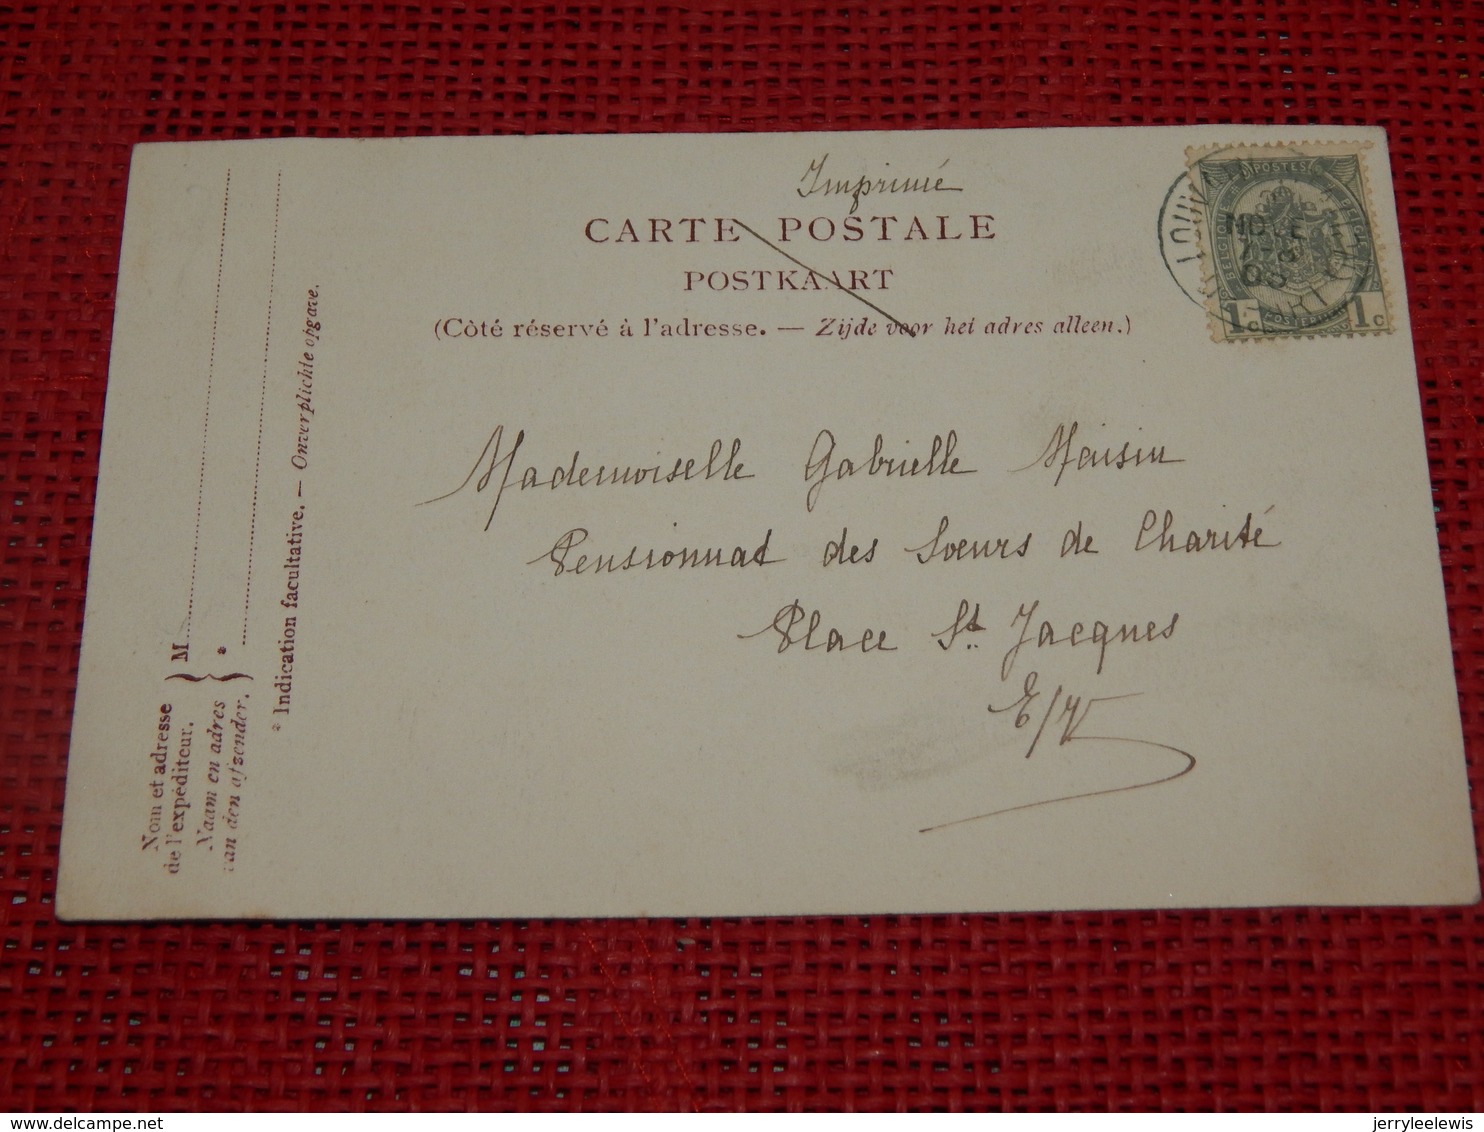 Imprimé
CARTE POSTALE
POSTKAART
(Côté réservé à l'adresse. — Zijde voor het adres alleen.)
POSTES
BELGIQUE
BELGIË
1 c
1 c
Mademoiselle Gabrielle Maisin
Pensionnat des Sœurs de Charité
Place St. Jacques
E/V
Nom et adresse
de l'expéditeur.
Naam en adres
van den afzender.
M
*
* Indication facultative. — Onverplichte opgave.
jerryleelewis